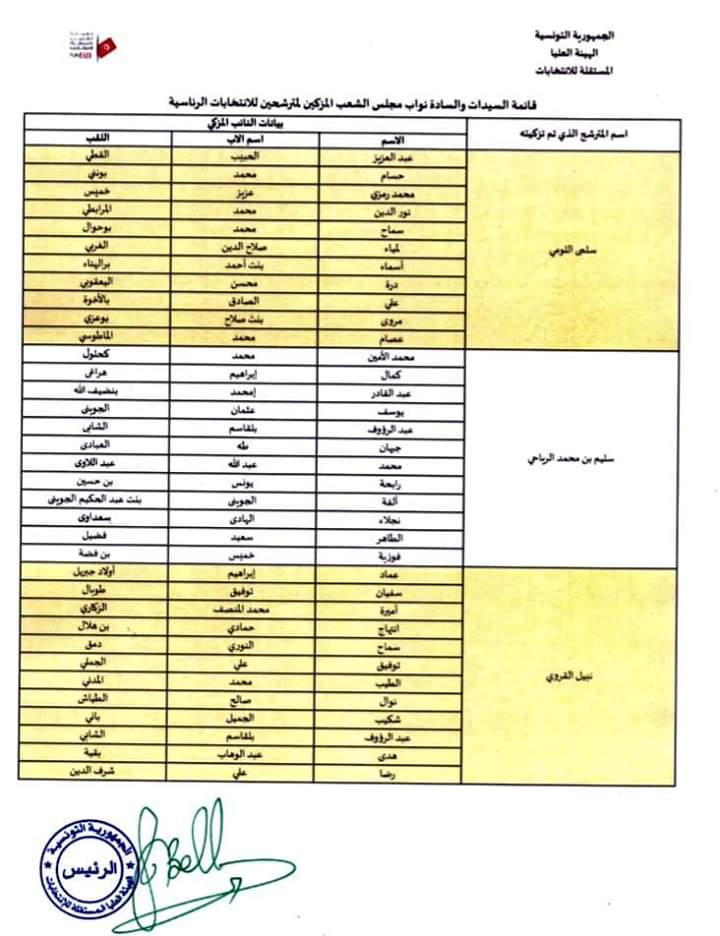 الجمهورية التونسية
الهيئة العليا
المستقلة للانتخابات
قائمة السيدات والسادة نواب مجلس الشعب المزكين لمترشحين للانتخابات الرئاسية
اسم المترشح الذي تم تزكيته
بيانات النائب المزكي
الاسم اسم الاب اللقب
سلمى اللومي
عبد العزيز الحبيب القطي
حسام محمد بونني
محمد رمزي عزيز خميس
نور الدين محمد المرابطي
سماح محمد بوحوال
لمياء صلاح الدين الغربي
أسماء بنت أحمد برالهناء
درة محسن اليعقوبي
علي الصادق بالأخوة
مروى بنت صلاح بوعزي
عصام محمد الماطوسي
سليم بن محمد الرياحي
محمد الأمين محمد كحلول
كمال إبراهيم هراغي
عبد القادر إمحمد بنضيف الله
يوسف عثمان الجويني
عبد الرؤوف بلقاسم الشابي
جيهان طه العبادى
محمد عبد الله عبد اللاوى
رابحة يونس بن حسين
ألفة الجويني بنت عبد الحكيم الجويني
نجلاء الهادى سعداوى
الطاهر سعيد فضيل
فوزية خميس بن فضة
نبيل القروي
عماد إبراهيم أولاد جبريل
سفيان توفيق طوبال
أميرة محمد المنصف الزكاري
ابتهاج حمادي بن هلال
سماح النوري دمق
توفيق علي الجملي
الطيب محمد المدني
نوال صالح الطياش
شكيب الجميل باني
عبد الرؤوف بلقاسم الشابي
هدى عبد الوهاب بقية
رضا علي شرف الدين
الجمهورية التونسية
الرئيس
الهيئة العليا المستقلة للانتخابات